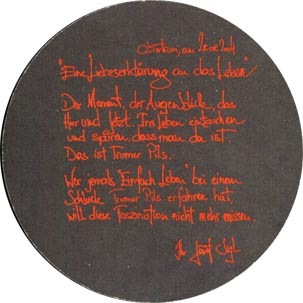 Obertrum, am 28.08.2001
"Eine Liebeserklärung an das Leben"
Der Moment, der Augenblick, das
Hier und Jetzt. Ins Leben eintauchen
und spüren, dass man da ist.
Das ist Trumer Pils.
Wer jemals "Einfach Leben" bei einem
Schluck Trumer Pils erfahren hat,
will diese Faszination nicht mehr missen.
Ihr Josef Sigl